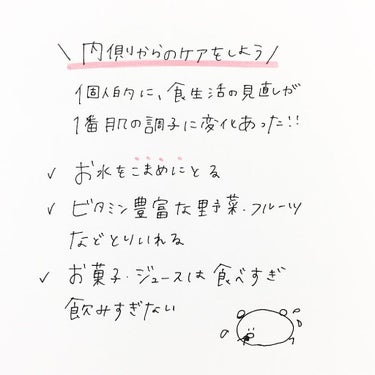 \ 内側からのケアをしよう /
個人的に、食生活の見直しが
1番肌の調子に変化あった!!
✓ お水をこまめにとる
✓ ビタミン豊富な野菜・フルーツ
などとりいれる
✓ お菓子・ジュースは食べすぎ
飲みすぎない